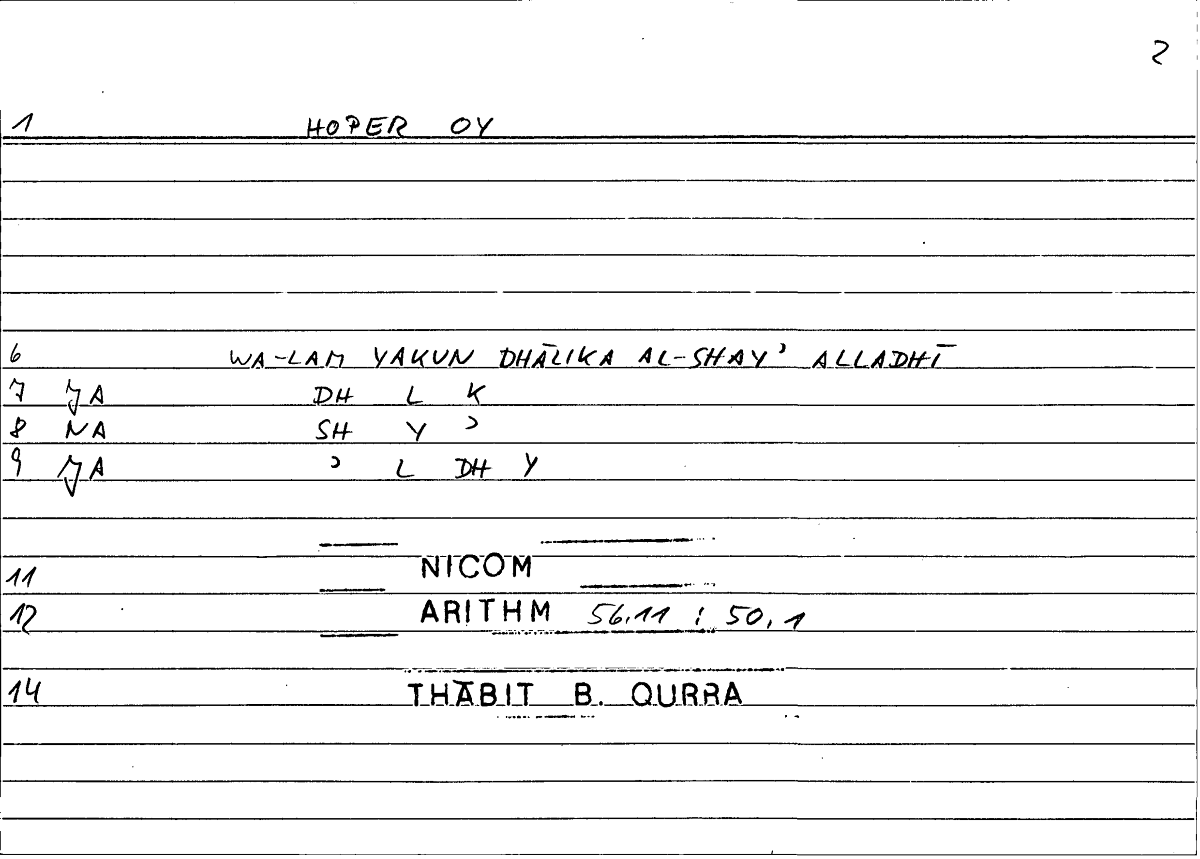 2
1 HOPER OY
6 WA-LAM YAKUN DHĀLIKA AL-SHAYʾ ALLADHĪ
7 JA DH L K
8 NA SH Y ʾ
9 JA ʾ L DH Y
11 NICOM
12 ARITHM 56,11 : 50,1
14 THĀBIT B. QURRA